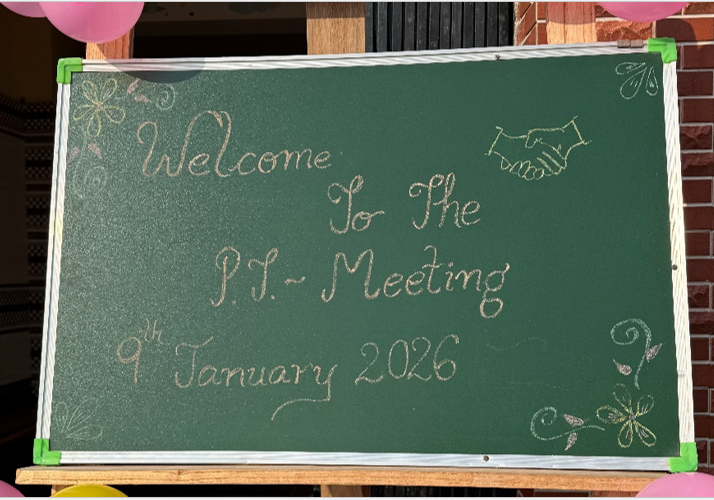 Welcome
To The
P.T.- Meeting
9th January 2026